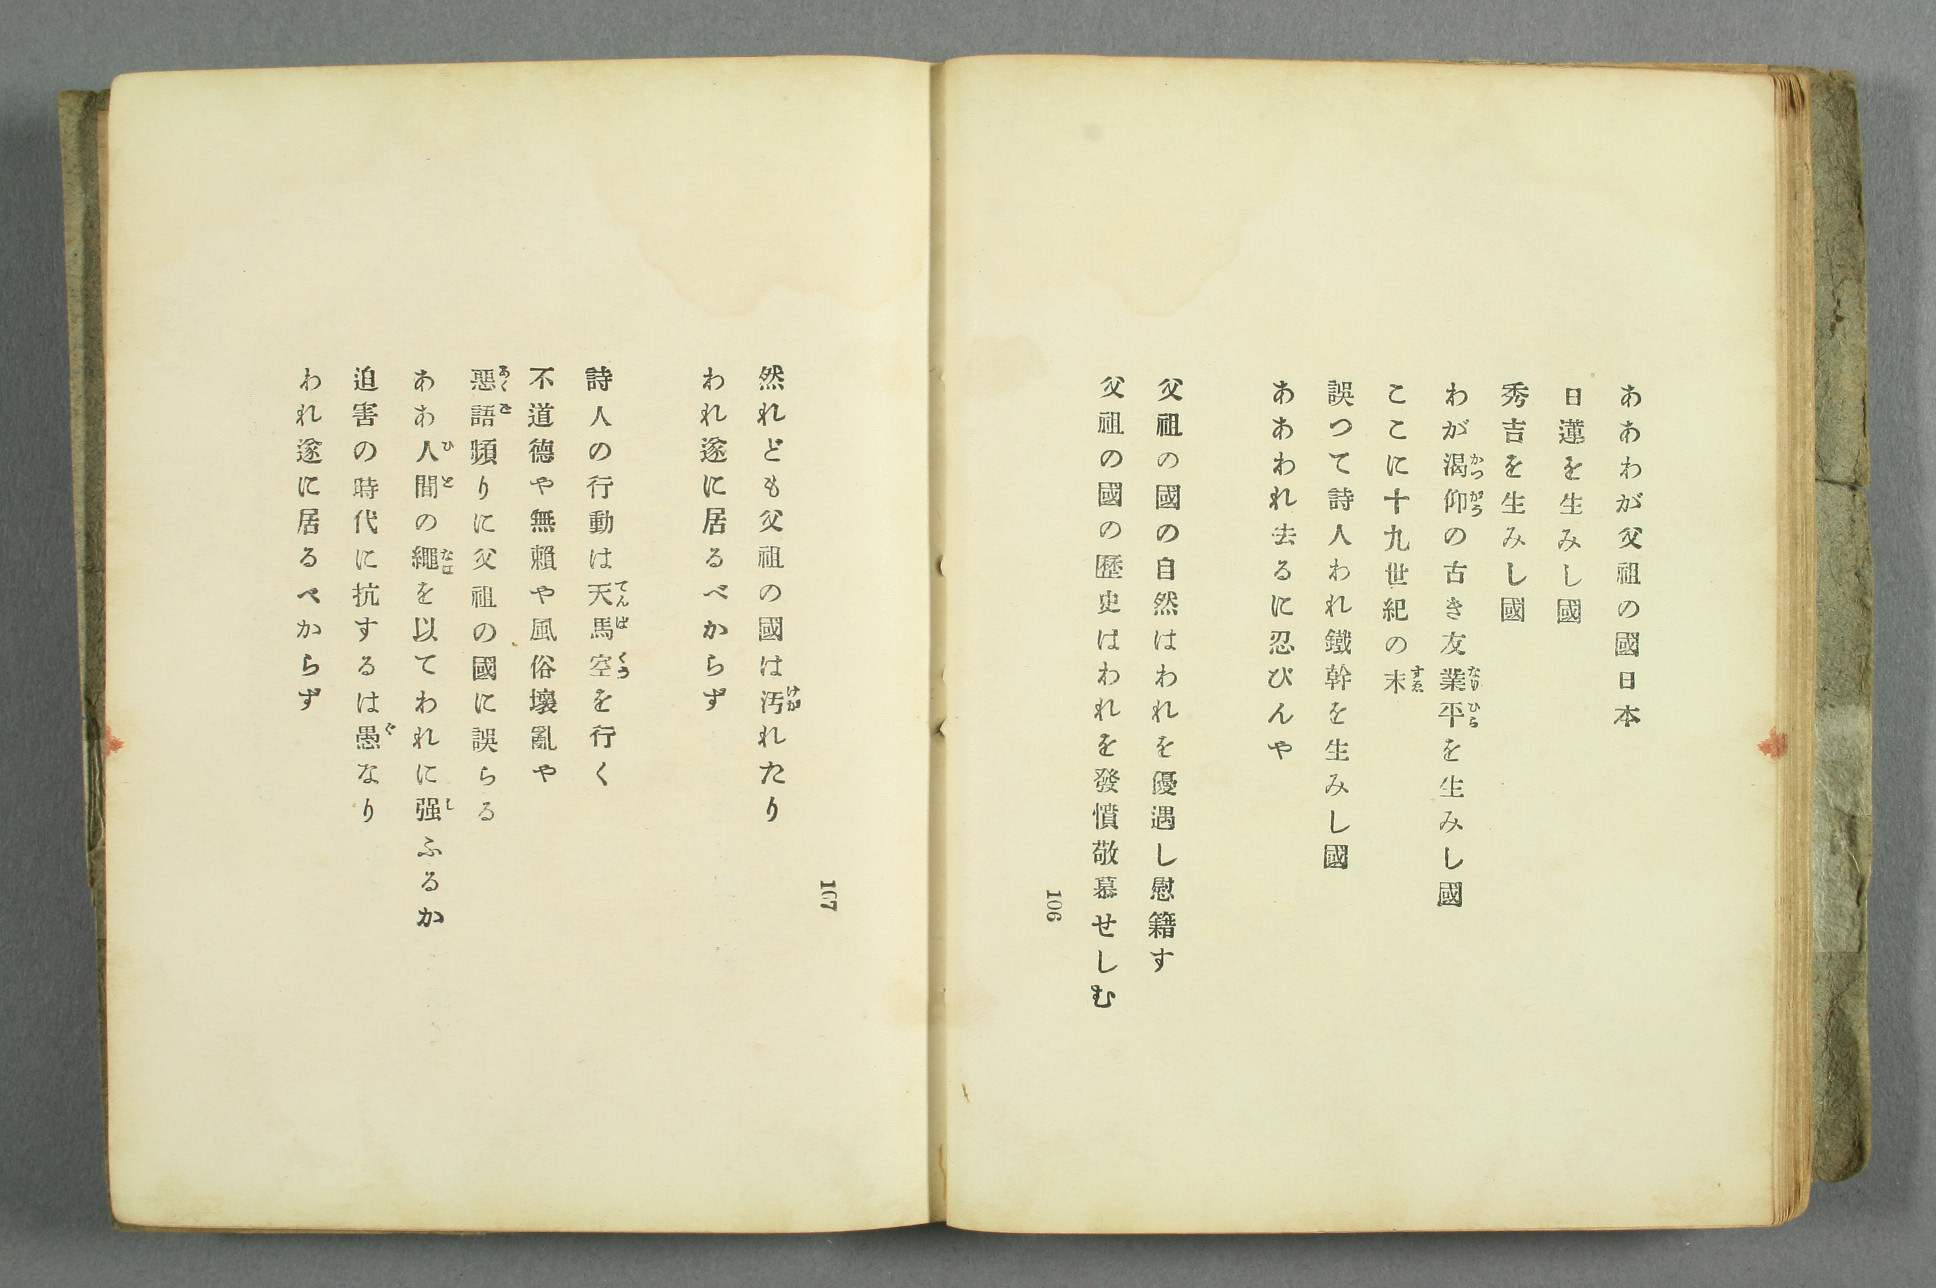 ああわが父祖の國日本
日蓮を生みし國
秀吉を生みし國
わが渴仰の古き友業平を生みし國
ここに十九世紀の末
誤つて詩人われ鐵幹を生みし國
ああわれ去るに忍びんや
父祖の國の自然はわれを優遇し慰籍す
父祖の國の歷史はわれを發憤敬慕せしむ
106
107
然れども父祖の國は汚れたり
われ遂に居るべからず
詩人の行動は天馬空を行く
不道德や無賴や風俗壞亂や
惡語頻りに父祖の國に誤らる
ああ人間の繩を以てわれに强ふるか
迫害の時代に抗するは愚なり
われ遂に居るべからず